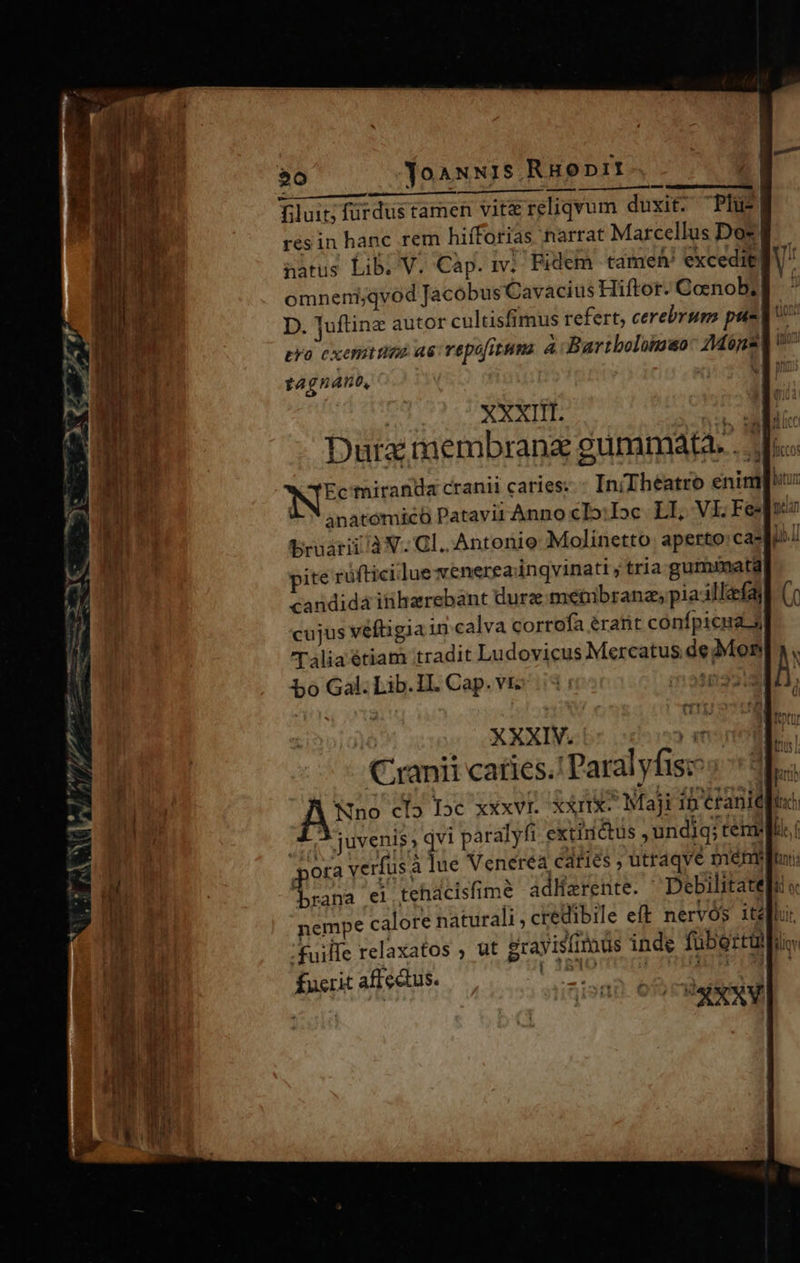 20 JOANNIS RHODII
filuit, surdus tamen vitæ reliqvum duxit. Plu-
res in hanc rem historias narrat Marcellus Do-
natus Lib. V. Cap. iv. Fidem tamen excedit
omnem, qvod Jacobus Cavacius Histor. Cœnob.
D. Justinæ autor cultissimus refert, cerebrum pu-
ero exemtum ac repositum à Bartholomæo Mon-
tagnano.
XXXIII.
Duræ membranæ gummata.
NEc miranda cranii caries. In Theatro enim
anatomicô Patavii Anno cIɔ Iɔc LI, VI. Fe-
bruarii à V. Cl. Antonio Molinetto aperto ca-
pite rustici lue venerea inqvinati, tria gummata
candida inhærebant duræ membranæ, pia illæsa,
cujus vestigia in calva corrosa erant conspicua.
Talia etiam tradit Ludovicus Mercatus de Mor-
bo Gal. Lib. II. Cap. vi.
XXXIV.
Cranii caries. Paralysis.
ANno cIɔ Iɔc xxxvi. Maji in cranio
juvenis, qvi paralysi extinctus, undiq; tem-
pora versus à lue Venerea caries, utraqve mem-
brana ei tenacissimè adhærente. Debilitate
nempe calore naturali, credibile est nervos ita
fuisse relaxatos, ut gravissimus inde subortus
fuerit affectus.
XXXV